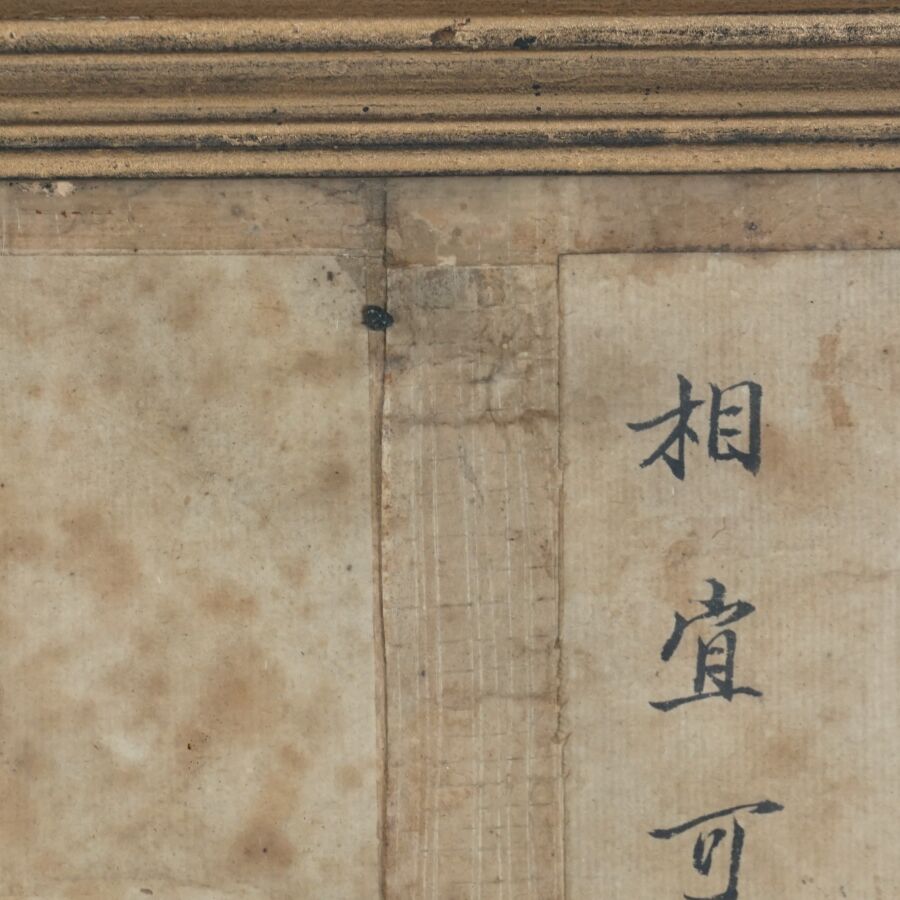 相宜可